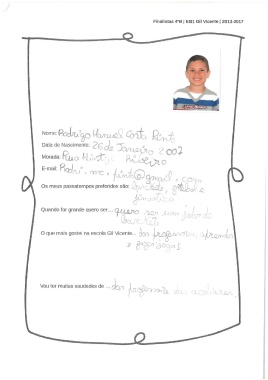 Finalistas 4ºB | EB1 Gil Vicente | 2013-2017
Nome: Rodrigo Manuel Costa Pinto
Data de Nascimento: 26 de Janeiro 2007
Morada: Rua Ribeiro
E-mail: Rodri. mc. pinto@gmail.com
Os meus passatempos preferidos são: futebol e
ginástica
Quando for grande quero ser... quero ser um jogador
O que mais gostei na escola Gil Vicente... dos professores, aprender
e
Vou ter muitas saudades de ... dos professores das auxiliares.